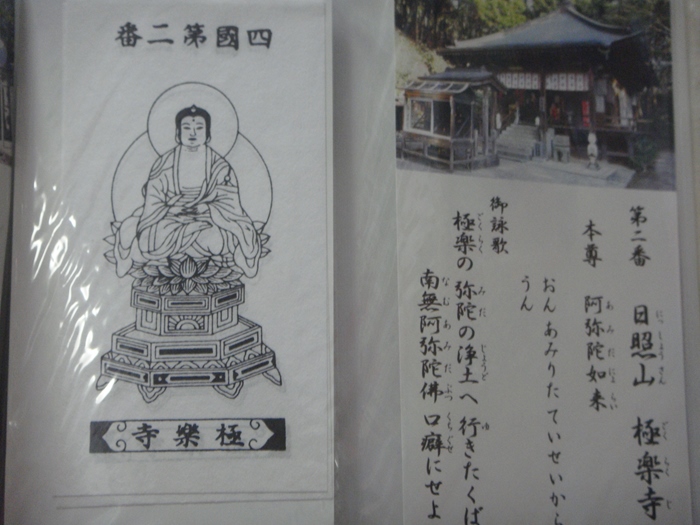 四國第二番
極樂寺
第二番 日照山 極楽寺
本尊 阿弥陀如来
おんあみりたていせいから
うん
御詠歌
極楽の弥陀の浄土へ行きたくば
南無阿弥陀佛口癖にせよ